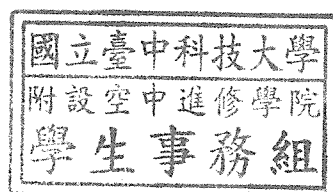 國立臺中科技大學
附設空中進修學院
學生事務組